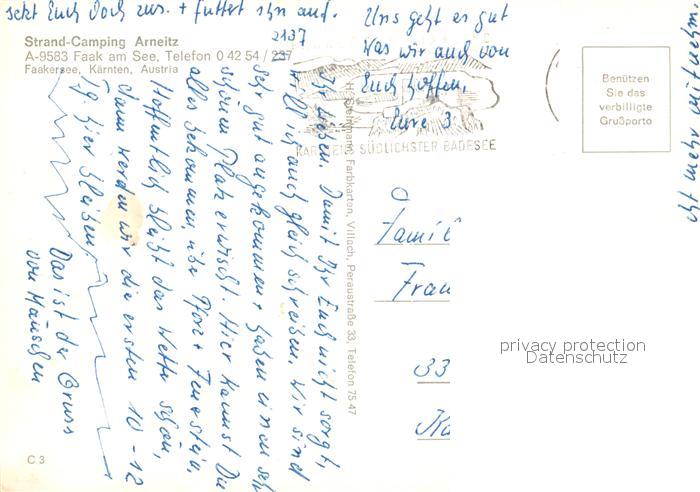 setzt Euch Doch zus. + futtert ihn auf.
Strand-Camping Arneitz
A-9583 Faak am See, Telefon 0 42 54 / 237
2137
Faakersee, Kärnten, Austria
Ihr Lieben. Damit Ihr Euch nicht sorgt,
will ich auch gleich schreiben. Wir sind
sehr gut angekommen + haben einen sehr
schönen Platz erwischt. Hier kannst Du
alles bekommen über Pforz + Feuerstein.
Hoffentlich bleibt das Wetter schön,
dann werden wir die ersten 10 - 12
Tg hier bleiben
Das ist der Gruss
von Mäuschen
C 3
Uns geht es gut
was wir auch von
Euch hoffen,
Eure 3
KÄRNTENS SÜDLICHSTER BADESEE
Farbkarten, Villach, Peraustraße 33, Telefon 75 47
Benützen
Sie das
verbilligte
Grußporto
Famil
Frau
33
Ka
privacy protection
Datenschutz